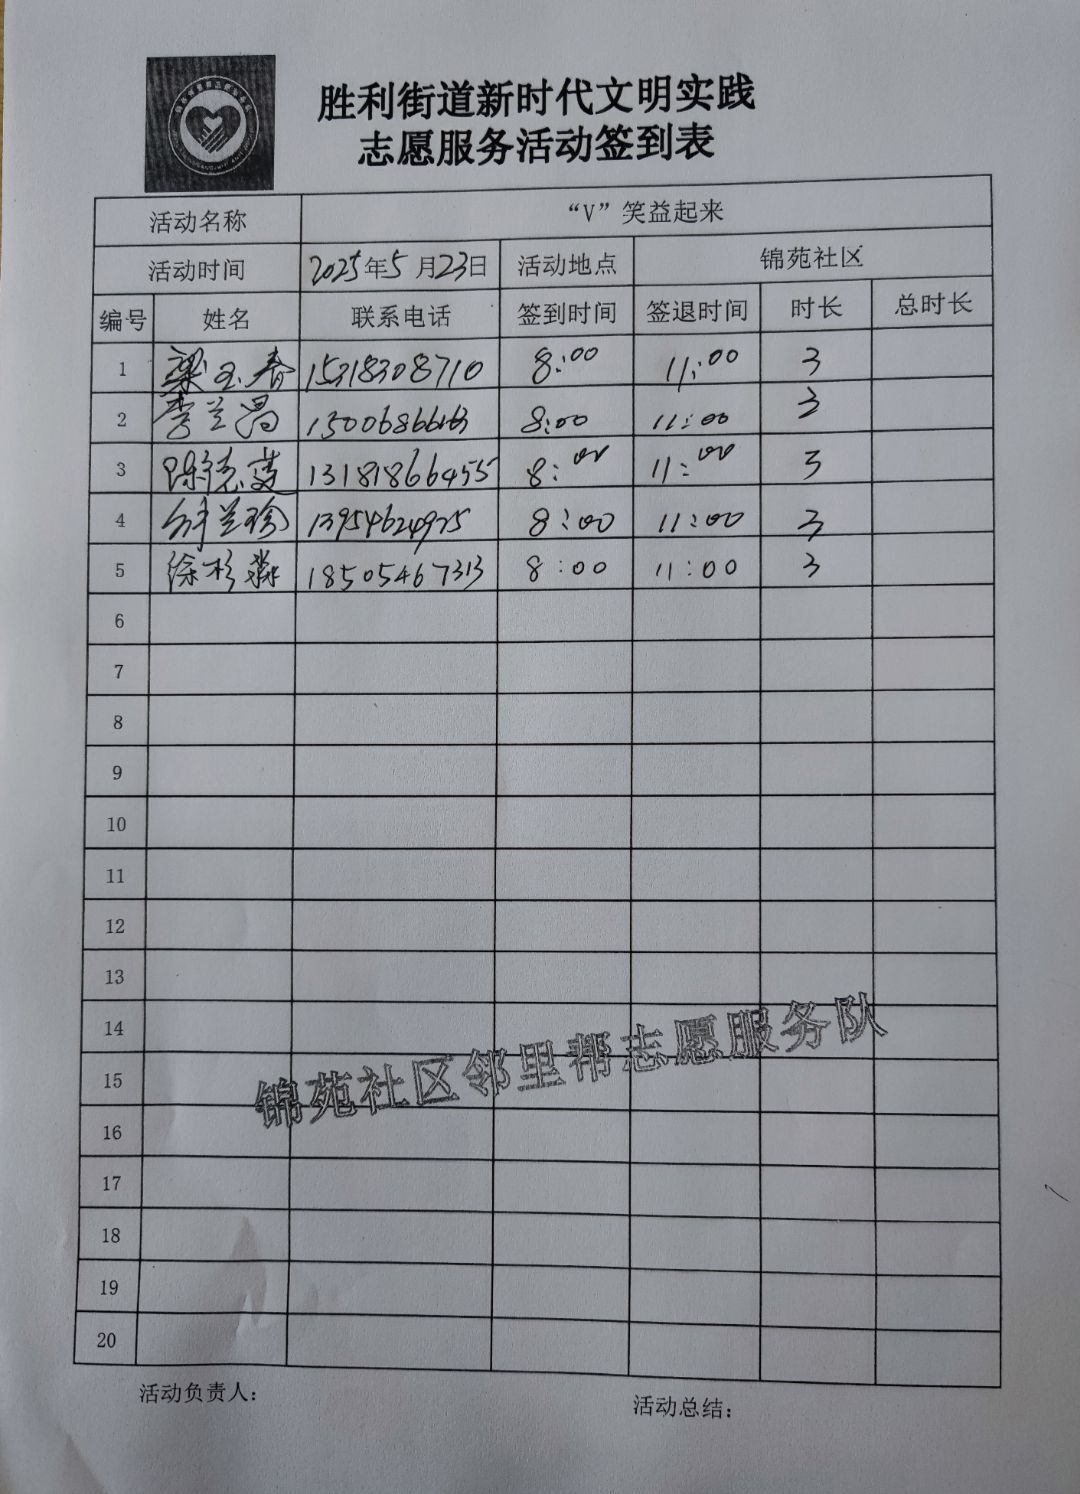 胜利街道新时代文明实践
志愿服务活动签到表
活动名称 “V”笑益起来
活动时间 2025年5月23日 活动地点 锦苑社区
编号 姓名 联系电话 签到时间 签退时间 时长 总时长
1 梁玉春 15318308710 8:00 11:00 3
2 李兰 8:00 11:00 3
3 陈 13181866455 8:00 11:00 3
4 兰珍 13954624975 8:00 11:00 3
5 徐杉 18505467313 8:00 11:00 3
6
7
8
9
10
11
12
13
14
锦苑社区邻里帮志愿服务队
15
16
17
18
19
20
活动负责人：
活动总结：